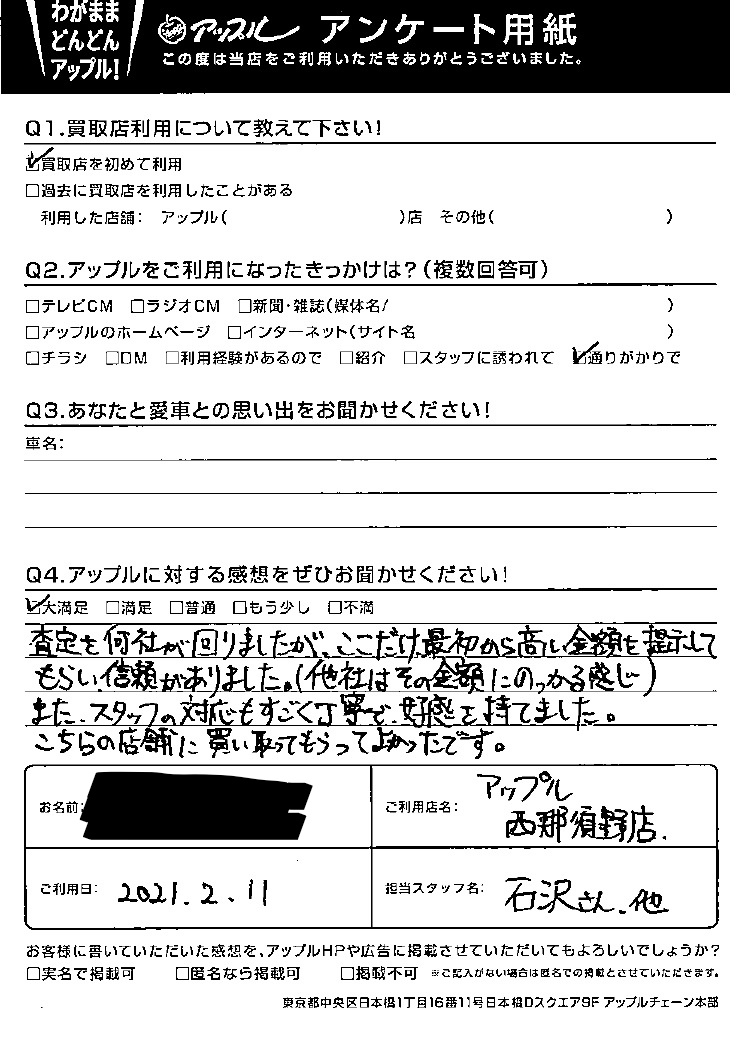 わがまま
どんどん
アップル!
アップル アンケート用紙
この度は当店をご利用いただきありがとうございました。
Q1.買取店利用について教えて下さい!
☑買取店を初めて利用
□過去に買取店を利用したことがある
利用した店舗: アップル( )店 その他( )
Q2.アップルをご利用になったきっかけは?(複数回答可)
□テレビCM □ラジオCM □新聞・雑誌(媒体名/ )
□アップルのホームページ □インターネット(サイト名 )
□チラシ □DM □利用経験があるので □紹介 □スタッフに誘われて ☑通りがかりで
Q3.あなたと愛車との思い出をお聞かせください!
車名:
Q4.アップルに対する感想をぜひお聞かせください!
☑大満足 □満足 □普通 □もう少し □不満
査定を何社か回りましたが、ここだけ最初から高い金額を提示して
もらい、信頼がありました。(他社はその金額にのっかる感じ)
また、スタッフの対応もすごく丁寧で、好感を持てました。
こちらの店舗に買い取ってもらってよかったです。
お名前:
ご利用店名: アップル
西那須野店.
ご利用日: 2021.2.11
担当スタッフ名: 石沢さん、他
お客様に書いていただいた感想を、アップルHPや広告に掲載させていただいてもよろしいでしょうか?
□実名で掲載可 □匿名なら掲載可 □掲載不可 ※ご記入がない場合は匿名での掲載とさせていただきます。
東京都中央区日本橋1丁目16番11号日本橋Dスクエア9F アップルチェーン本部